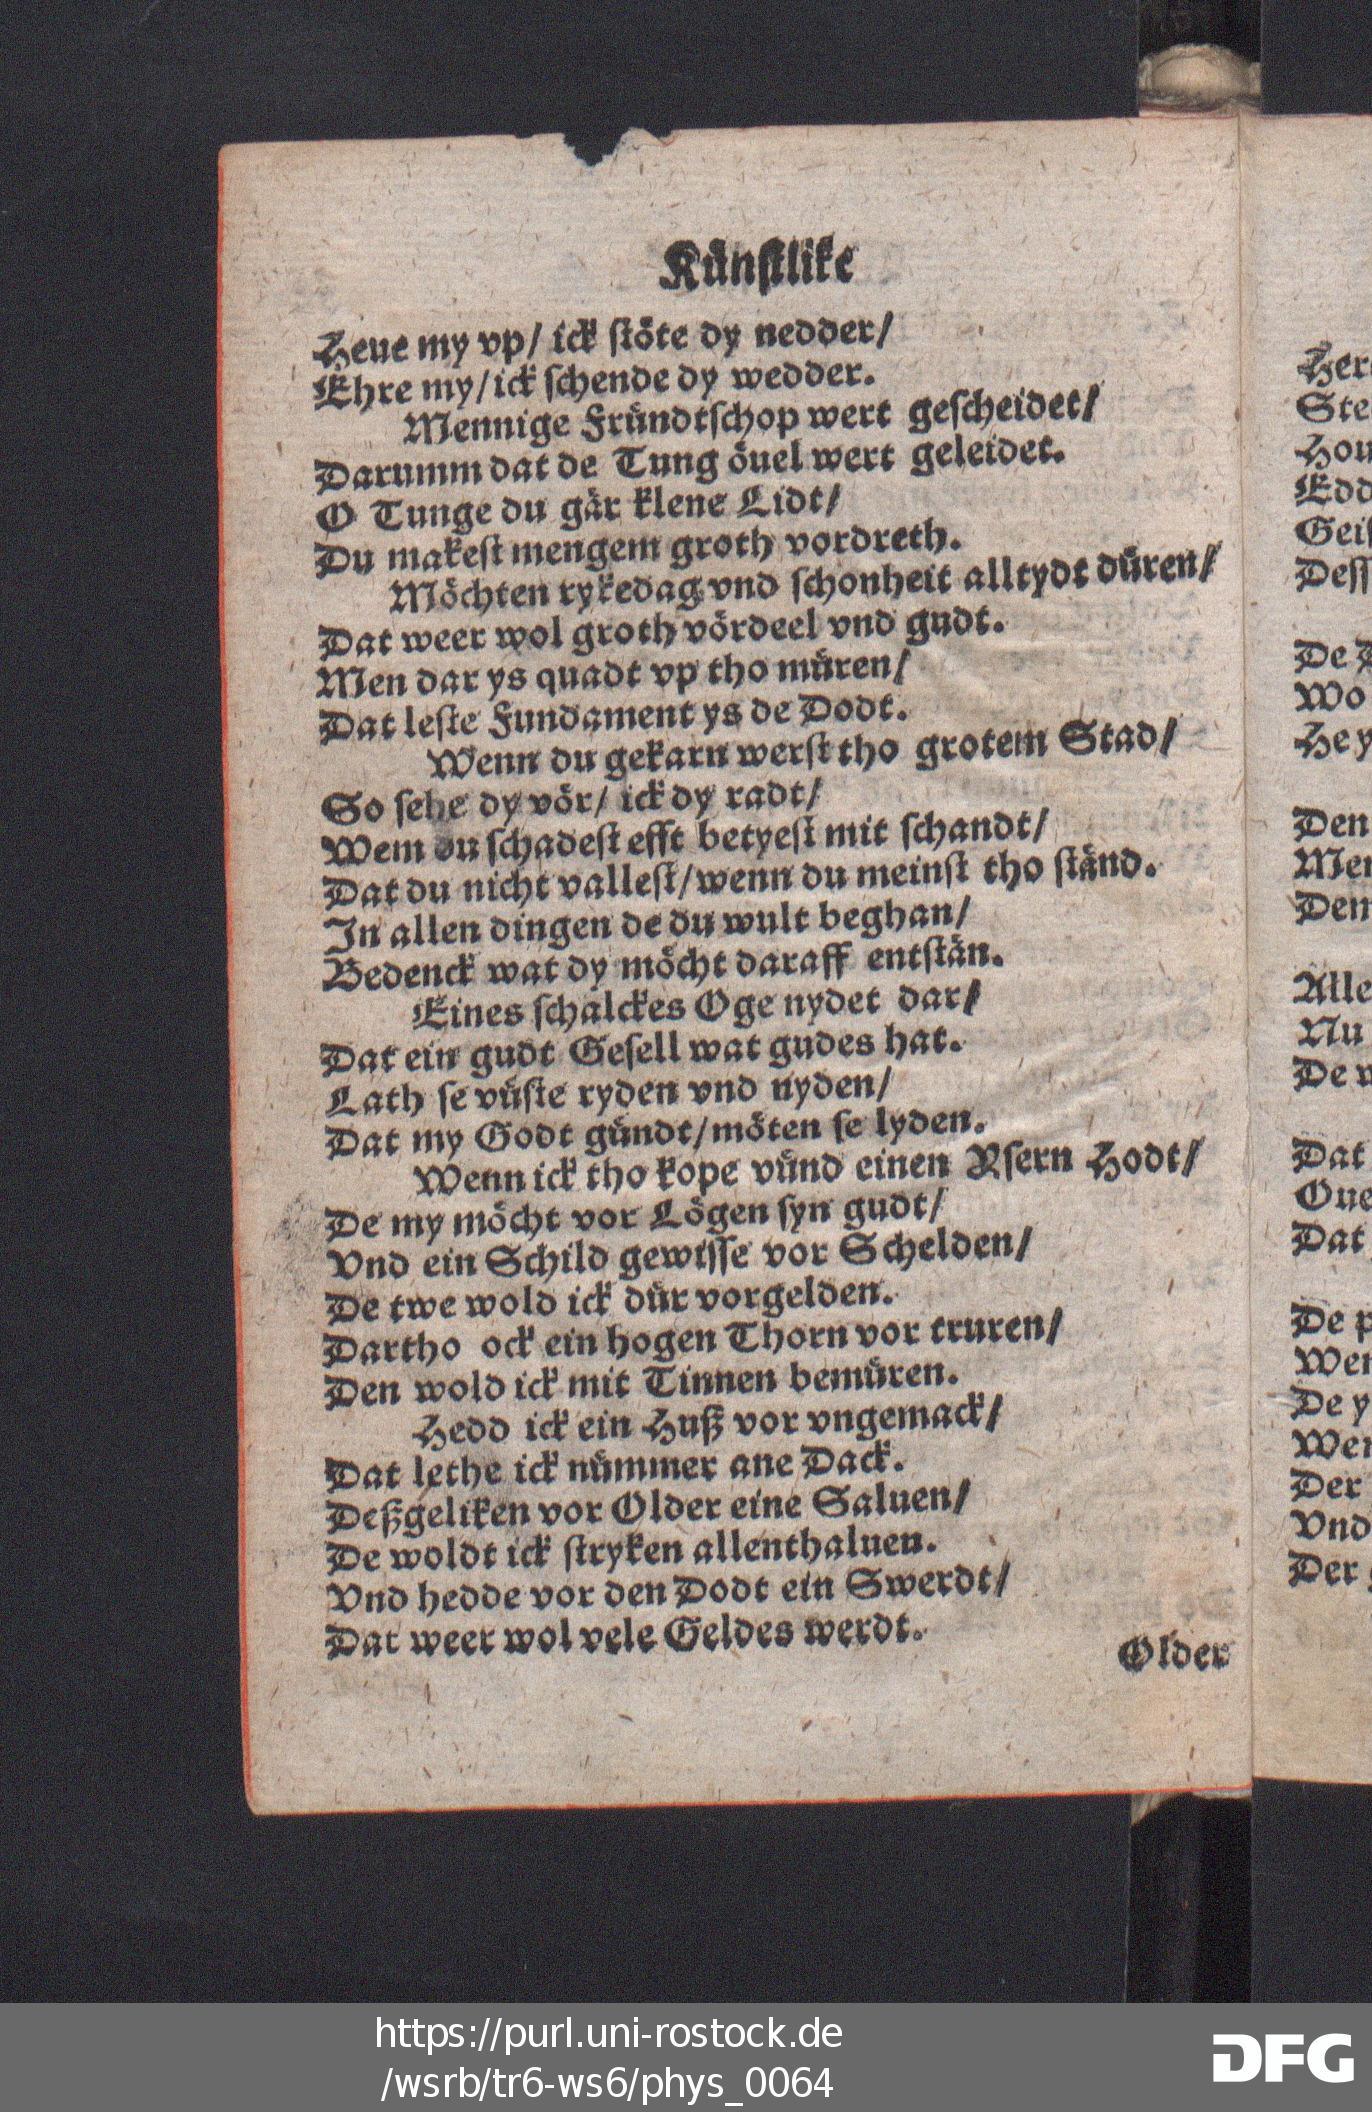 Künstlike
Heue my vp/ ick stöte dy nedder/
Ehre my/ ick schende dy wedder.
Mennige Fründtschop wert gescheidet/
Darumm dat de Tung öuel wert geleidet.
O Tunge du gär klene Lidt/
Du makest mengem groth vordreth.
Möchten rykedag vnd schonheit alltydt düren/
Dat weer wol groth vördeel vnd gudt.
Men dar ys quadt vp tho müren/
Dat leste Fundament ys de Dodt.
Wenn du gekarn werst tho grotem Stad/
So sehe dy vör/ ick dy radt/
Wem du schadest efft betyest mit schandt/
Dat du nicht vallest/ wenn du meinst tho ständ.
In allen dingen de du wult beghan/
Bedenck wat dy möcht daraff entstän.
Eines schalckes Oge nydet dar/
Dat ein gudt Gesell wat gudes hat.
Lath se vüste ryden vnd nyden/
Dat my Godt gündt/ möten se lyden.
Wenn ick tho kope vünd einen Ysern Hodt/
De my möcht vor Lögen syn gudt/
Vnd ein Schild gewisse vor Schelden/
De twe wold ick dür vorgelden.
Dartho ock ein hogen Thorn vor truren/
Den wold ick mit Tinnen bemüren.
Hedd ick ein Huß vor vngemack/
Dat lethe ick nümmer ane Dack.
Deßgeliken vor Older eine Saluen/
De woldt ick stryken allenthaluen.
Vnd hedde vor den Dodt ein Swerdt/
Dat weer wol vele Geldes werdt.
Older
Ste
Edd
Dess
De
Wo
He y
Den
Alle
Nu
De
Dat
Oue
Dat
De
De y
Der
Vnd
Der
https://purl.uni-rostock.de
/wsrb/tr6-ws6/phys_0064
DFG